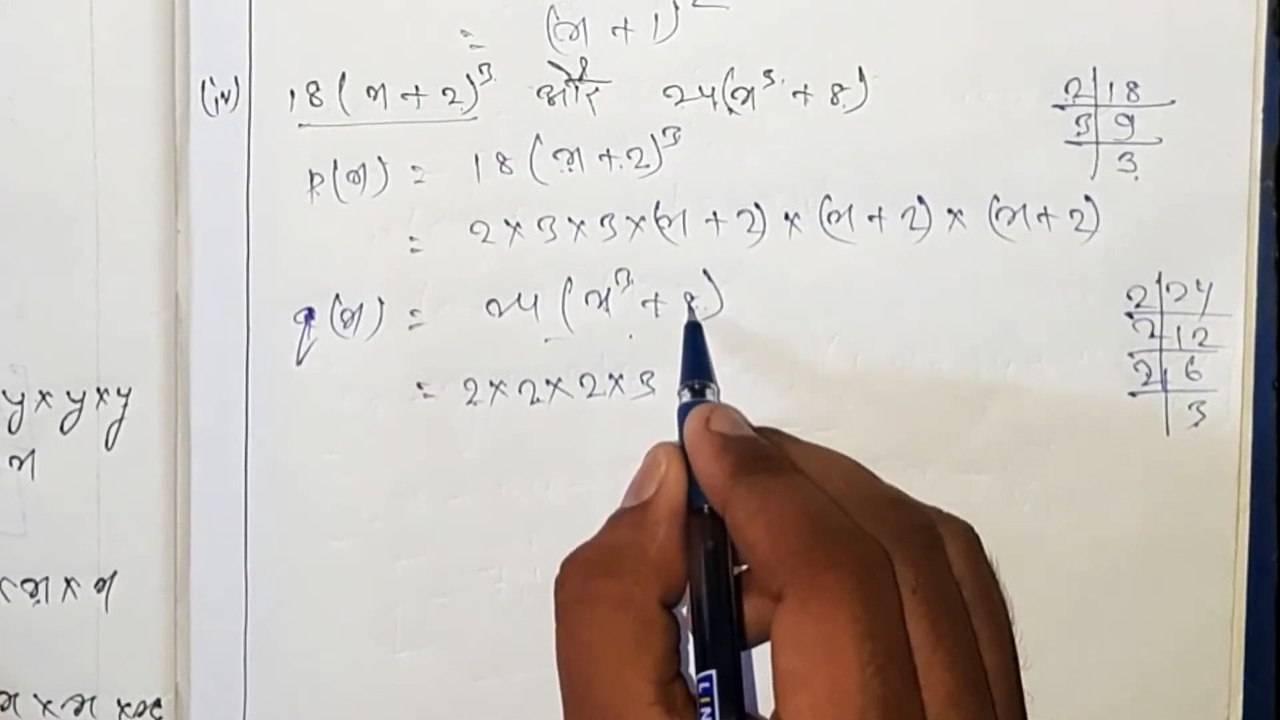 = (x + 1)²
(iv) 18(x + 2)³ और 24(x³ + 8)
p(x) = 18(x + 2)³
= 2 × 3 × 3 × (x + 2) × (x + 2) × (x + 2)
q(x) = 24(x³ + 8)
= 2 × 2 × 2 × 3
2 | 18
3 | 9
| 3
2 | 24
2 | 12
2 | 6
| 3
y × y × y
x
LIN